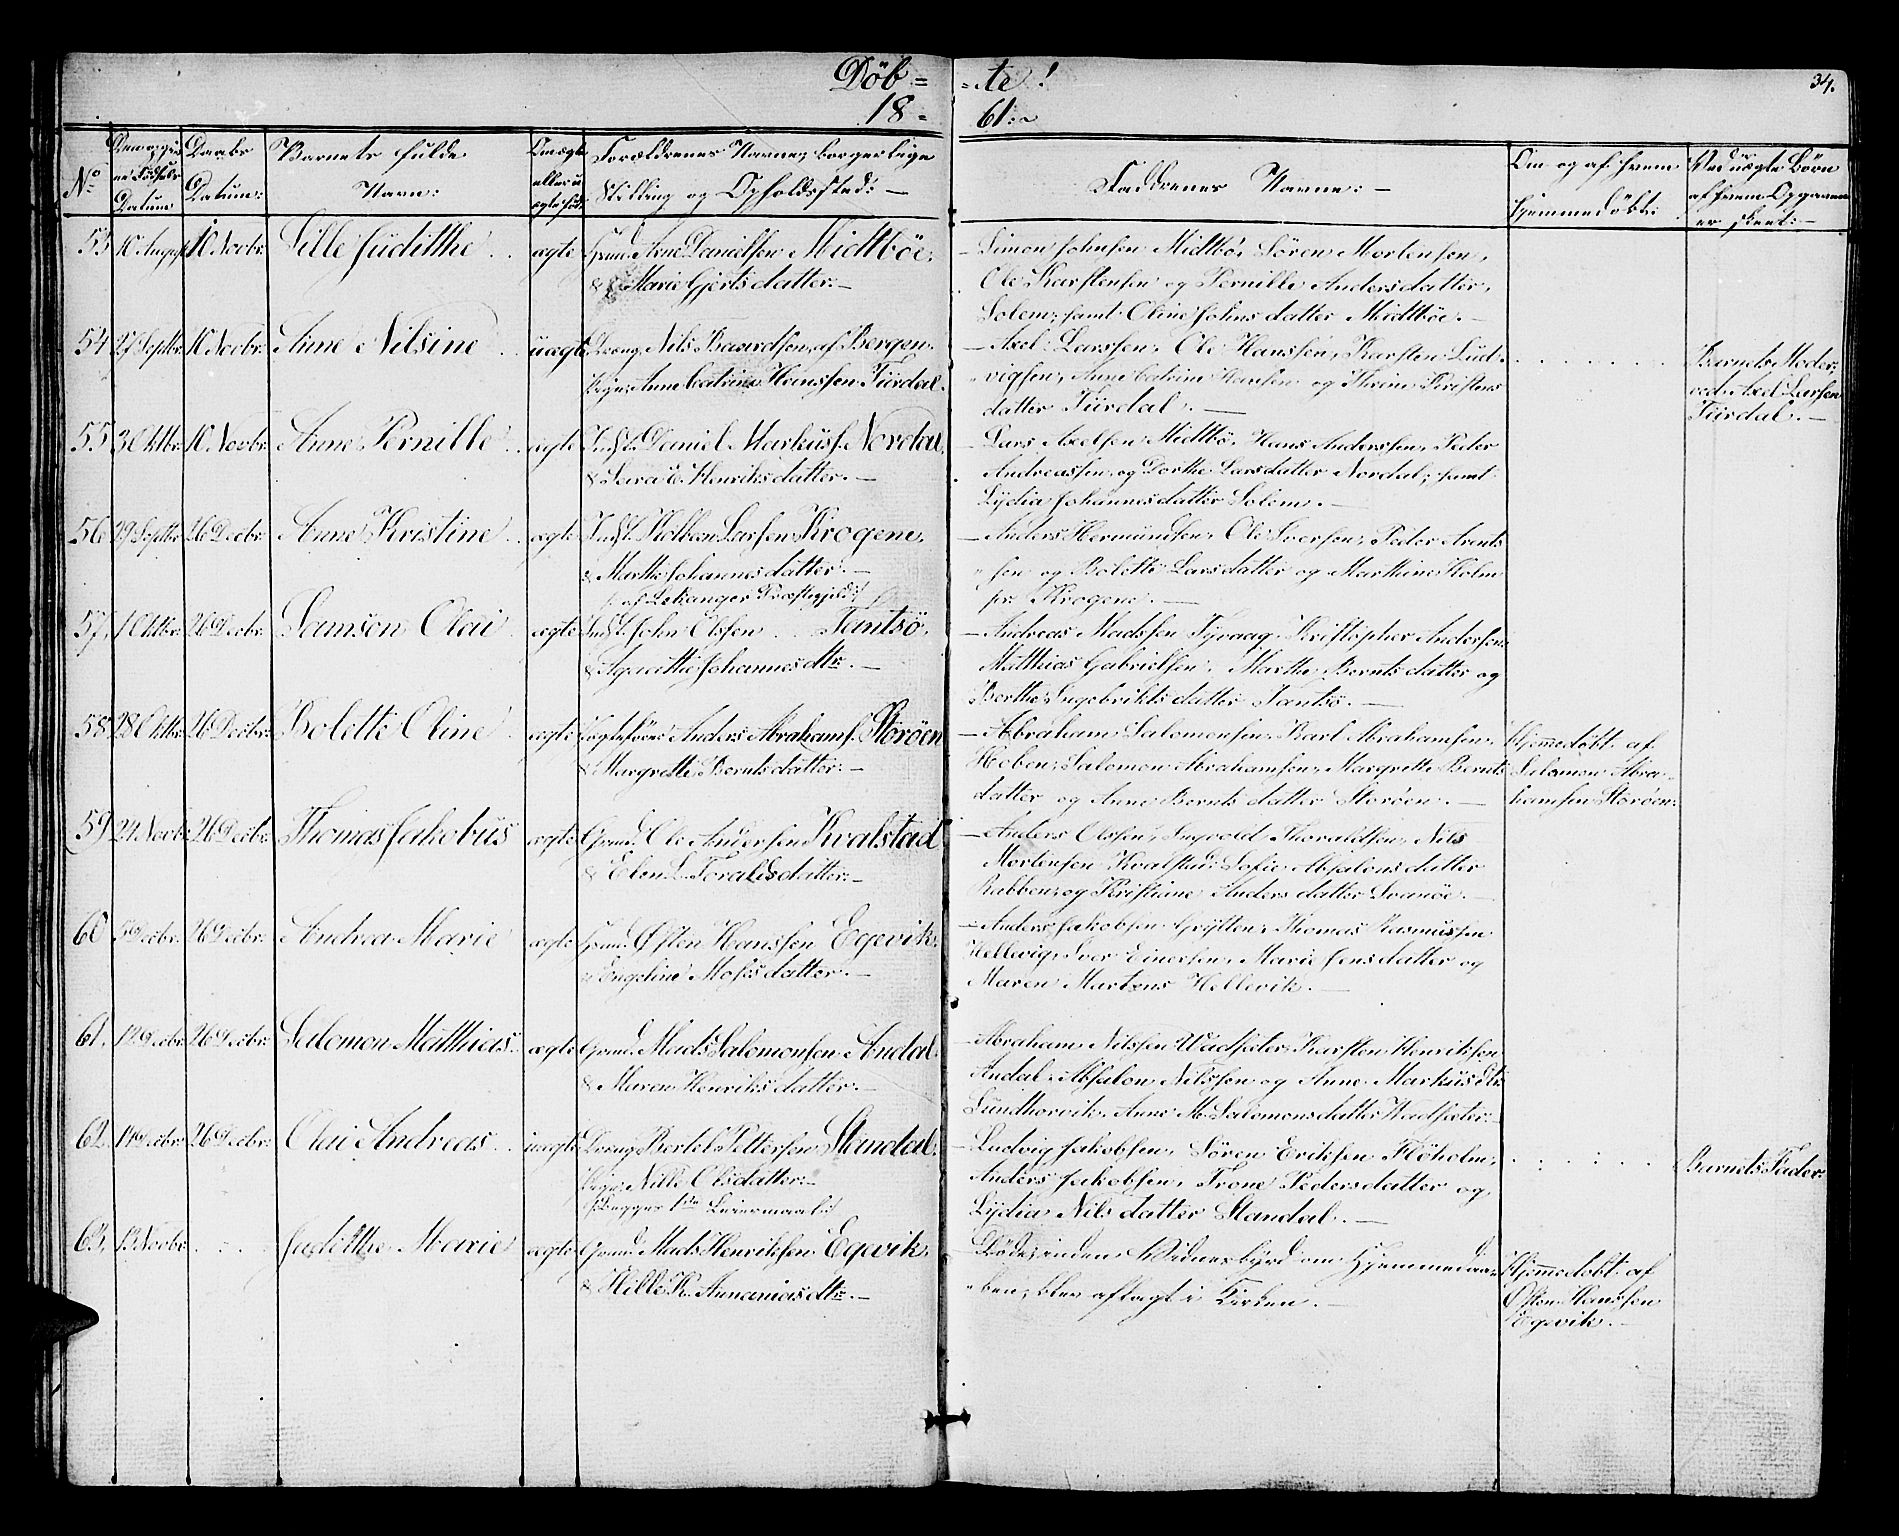 Döb= =te!
34.
18= 61:~
No
Datum
Daabs
Datum:
Barnets fulde
Navn:
Om ægte
eller u
ægte fød:
Forældrenes Navne, borgerlige
Stilling og Opholdssted: —
Faddrenes Navne: —
Om og af hvem
hjemmedöbt:
Ved uægte Börn
af hvem Opgaven
er skeet: —
53 10 August 10 Novbr: Sille Judithe ægte Grmd. Arne Danielsen Midtböe,
& Marie Gjertsdatter. —
— Simon Johnsen Midtbö, Sören Mortensen,
Ole Karstensen og Pernille Andersdatter,
Solem, samt Oline Johnsdatter Midtböe. —
54 27 Septbr: 10 Novbr: Anne Nilsine uægte Dreng Nils Baardsen, af Bergen.
Pige, Anne Catrine Hanssen Türdal.
— Axel Larssen, Ole Hanssen, Karsten Lud-
vigsen, Anne Catrine Hansen og Thrine Kristens
datter Türdal. —
Barnets Moder,
ved Axel Larsen
Türdal. —
55 3 Oktbr: 10 Novbr: Anne Pernille ægte Inst. Daniel Markuss. Nordal,
& Lovise Henriksdatter. —
— Lars Axelsen Midtbö, Hans Anderssen, Peder
Andreassen og Dorthe Larsdatter Nordal, samt
Lydia Johannesdatter Solem. —
56 29 Septbr 26 Decbr: Anne Kristine ægte Inst. Kolbeen Larsen Krogene,
& Marthe Johannesdatter. —
/: af Lekanger Præstegjeld :/
— Anders Hermundsen, Ole Iversen, Peder Arents
sen og Bolette Larsdatter og Marthine Holm
pr. Krogene. —
57, 1 Oktbr: 26 Decbr: Samson Olai ægte Inst. John Olssen Tantsö,
& Agathe Johannesdtr. —
— Andreas Madssen Tyvaag, Kristopher Andersen,
Matthias Gabrielsen, Marthe Berntsdatter og
Berthe Ingebriktsdatter Tantsö. —
58 28 Oktbr: 26 Decbr: Bolette Oline ægte Anders Abrahams. Storöen
& Margrethe Berntsdatter. —
— Abraham Salomonsen, Karl Abrahamsen,
Hoben, Salomon Abrahamsen, Margrethe Bernts
datter og Anne Berntsdatter Storöen. —
Hjemmedöbt af
Salomon Abra-
hamsen Storöen:
59 24 Novbr 26 Decbr: Thomas Jakobus ægte Grmd. Ole Andersen Kvalstad
& Elen L. Toraldsdatter: —
— Anders Olssen, Ingvold Thoraldsen, Nils
Mortensen Kvalstad, Sofie Absalonsdatter
Rabben, og Kristiane Andersdatter Svanöe. —
60 5 Decbr. 26 Decbr: Andrea Marie ægte Grmd. Østen Hanssen Egevik,
& Engeline Mosisdatter. —
— Anders Jakobsen Grytten, Thomas Rasmussen
Hellevig, Iver Einersen, Marie Jensdatter og
Maren Martens Hellevik. —
61. 12 Decbr 26 Decbr: Salomon Matthias. ægte Grmd. Mads Salomonsen Andal,
& Maren Henriksdatter. —
— Abraham Nilssen Wadsæter, Karsten Henriksen
Andal, Absalon Nilssen og Anne Markusdtr
Sundhorvik, Anne M. Salomonsdatter Wadsæter: —
62. 14 Decbr 26 Decbr: Olai Andreas uægte Dreng Bertel Pettersen Standal,
Pige Nille Olsdatter: —
/: Begges 1ste Leiermaal :/
— Ludvig Jakobsen, Sören Eriksen Flöholm,
Anders Jakobsen, Trone Pedersdatter og,
Lydia Nilsdatter Standal. —
Barnets Fader.
63. 13 Novbr Judithe Marie ægte Grmd. Mads Henriksen Egevik,
& Hille K. Annaniasdtr. —
— Döde, inden Vidnesbyrd om Hjemmedaa-
ben, blev aflagt i Kirken. —
Hjemmedöbt af
Østen Hanssen
Egevik. —